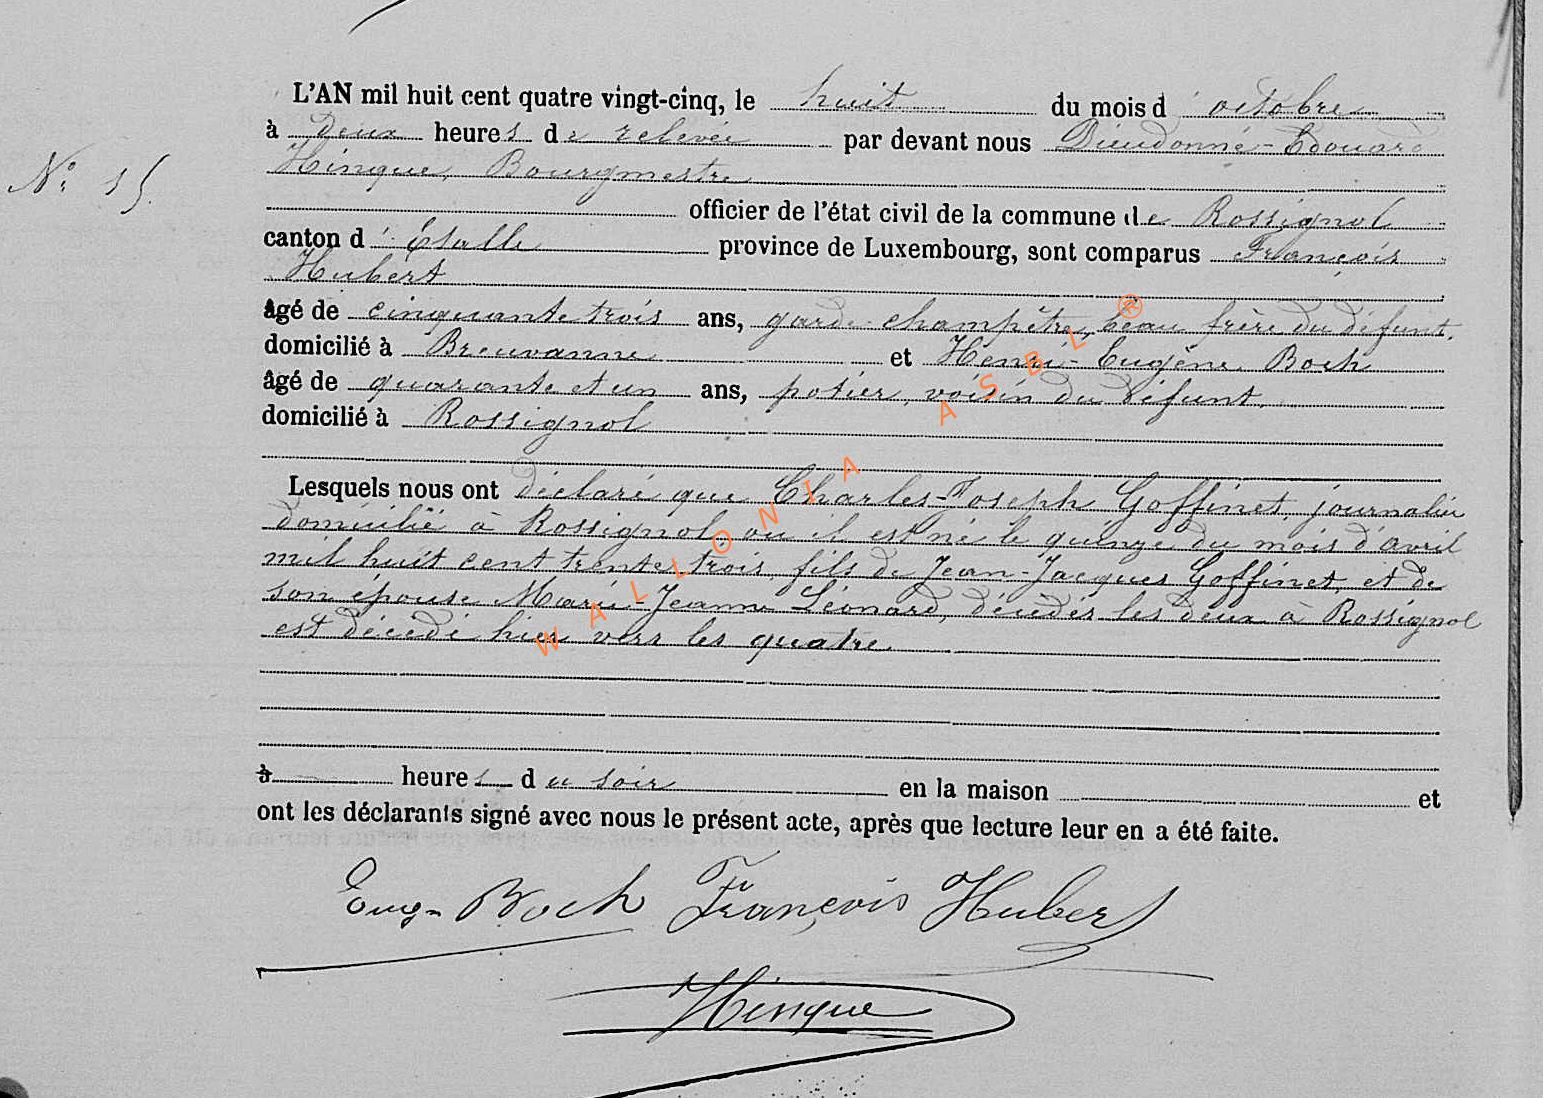 L'AN mil huit cent quatre vingt-cinq, le huit du mois d' octobre
à deux heures de relevée par devant nous Dieudonné-Edouard
Hinque, Bourgmestre
N° 15.
officier de l'état civil de la commune de Rossignol
canton d' Etalle province de Luxembourg, sont comparus François
Hubert
âgé de cinquante trois ans, garde champêtre, beau frère du défunt,
domicilié à Breuvanne et Henri-Eugène Boch
âgé de quarante et un ans, potier, voisin du défunt,
domicilié à Rossignol
Lesquels nous ont déclaré que Charles-Joseph Goffinet, journalier
domicilié à Rossignol, ou il est né le quinze du mois d'avril
mil huit cent trente trois, fils de Jean-Jacques Goffinet, et de
son épouse Marie-Jeanne Léonard, décédés les deux à Rossignol
est décédé hier vers les quatre
à heures du soir en la maison et
ont les déclarants signé avec nous le présent acte, après que lecture leur en a été faite.
Eug- Boch François Hubert
Hinque
WALLONIA ASBL ®